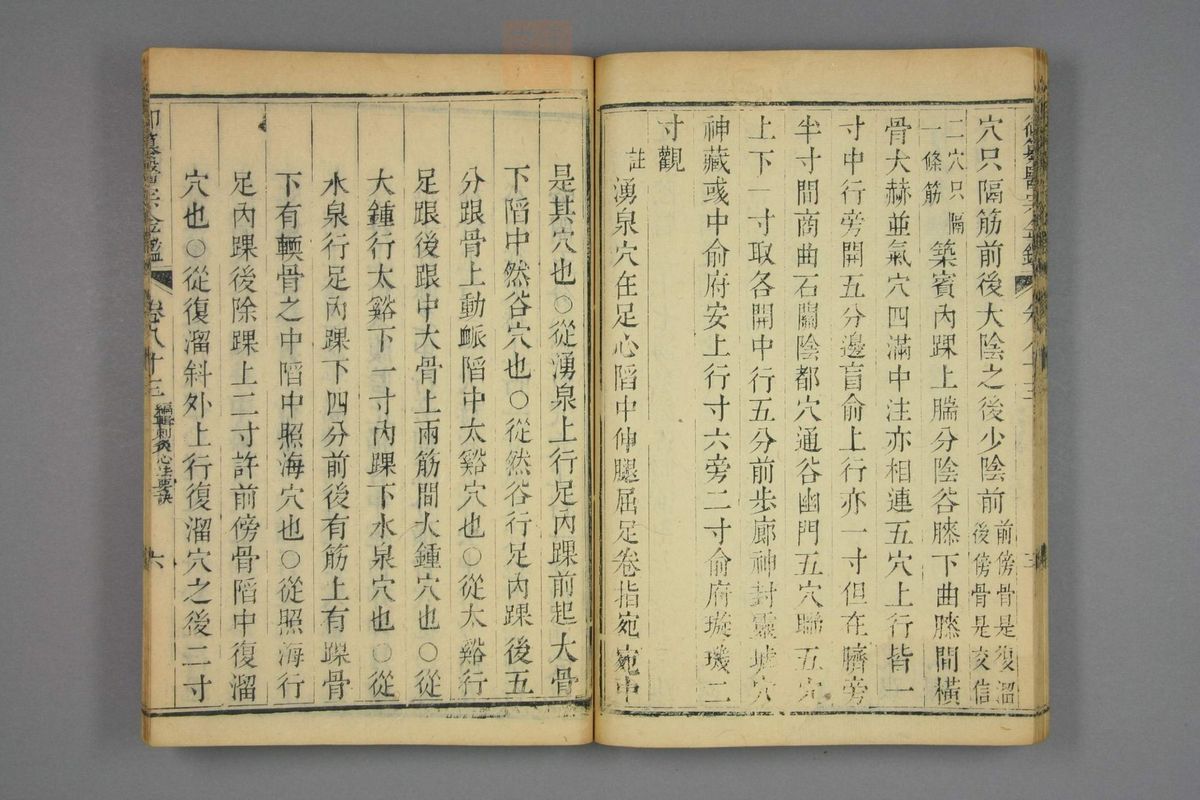 穴只隔筋前後大陰之後少陰前前傍骨是復溜後傍骨是交信
二穴只隔一條筋築賓內踝上腨分陰谷膝下曲膝間橫
骨大赫並氣穴四滿中注亦相連五穴上行皆一
寸中行旁開五分邊肓俞上行亦一寸但在臍旁
半寸間商曲石關陰都穴通谷幽門五穴聯五穴
上下一寸取各開中行五分前步廊神封靈墟穴
神藏彧中俞府安上行寸六旁二寸俞府璇璣二
寸觀
註湧泉穴在足心䧟中伸腿屈足卷指宛宛中
是其穴也○從湧泉上行足內踝前起大骨
下䧟中然谷穴也○從然谷行足內踝後五
分跟骨上動䘑䧟中太谿穴也○從太谿行
足跟後跟中大骨上兩筋間大鍾穴也○從
大鍾行太谿下一寸內踝下水泉穴也○從
水泉行足內踝下四分前後有筋上有踝骨
下有輭骨之中䧟中照海穴也○從照海行
足內踝後除踝上二寸許前傍骨䧟中復溜
穴也○從復溜斜外上行復溜穴之後二寸
御纂醫宗金鑑 卷八十三 編輯刺灸心法要訣 六